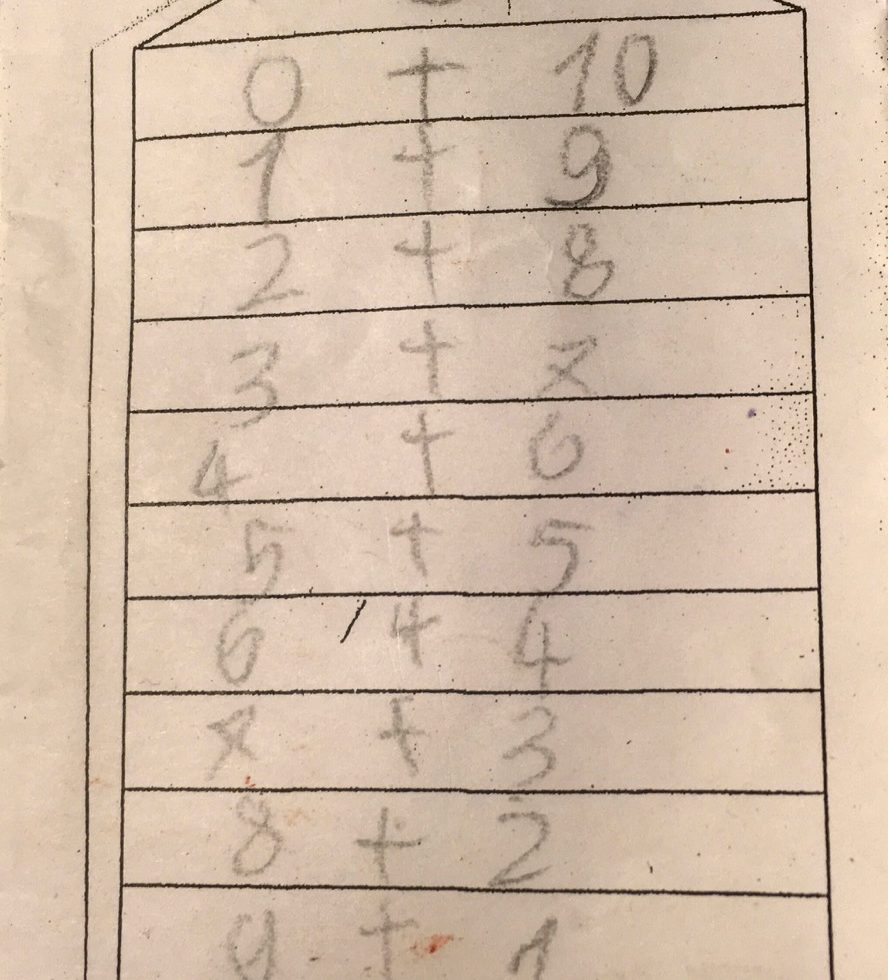 0 + 10
1 + 9
2 + 8
3 + 7
4 + 6
5 + 5
6 4 4
7 + 3
8 + 2
9 + 1